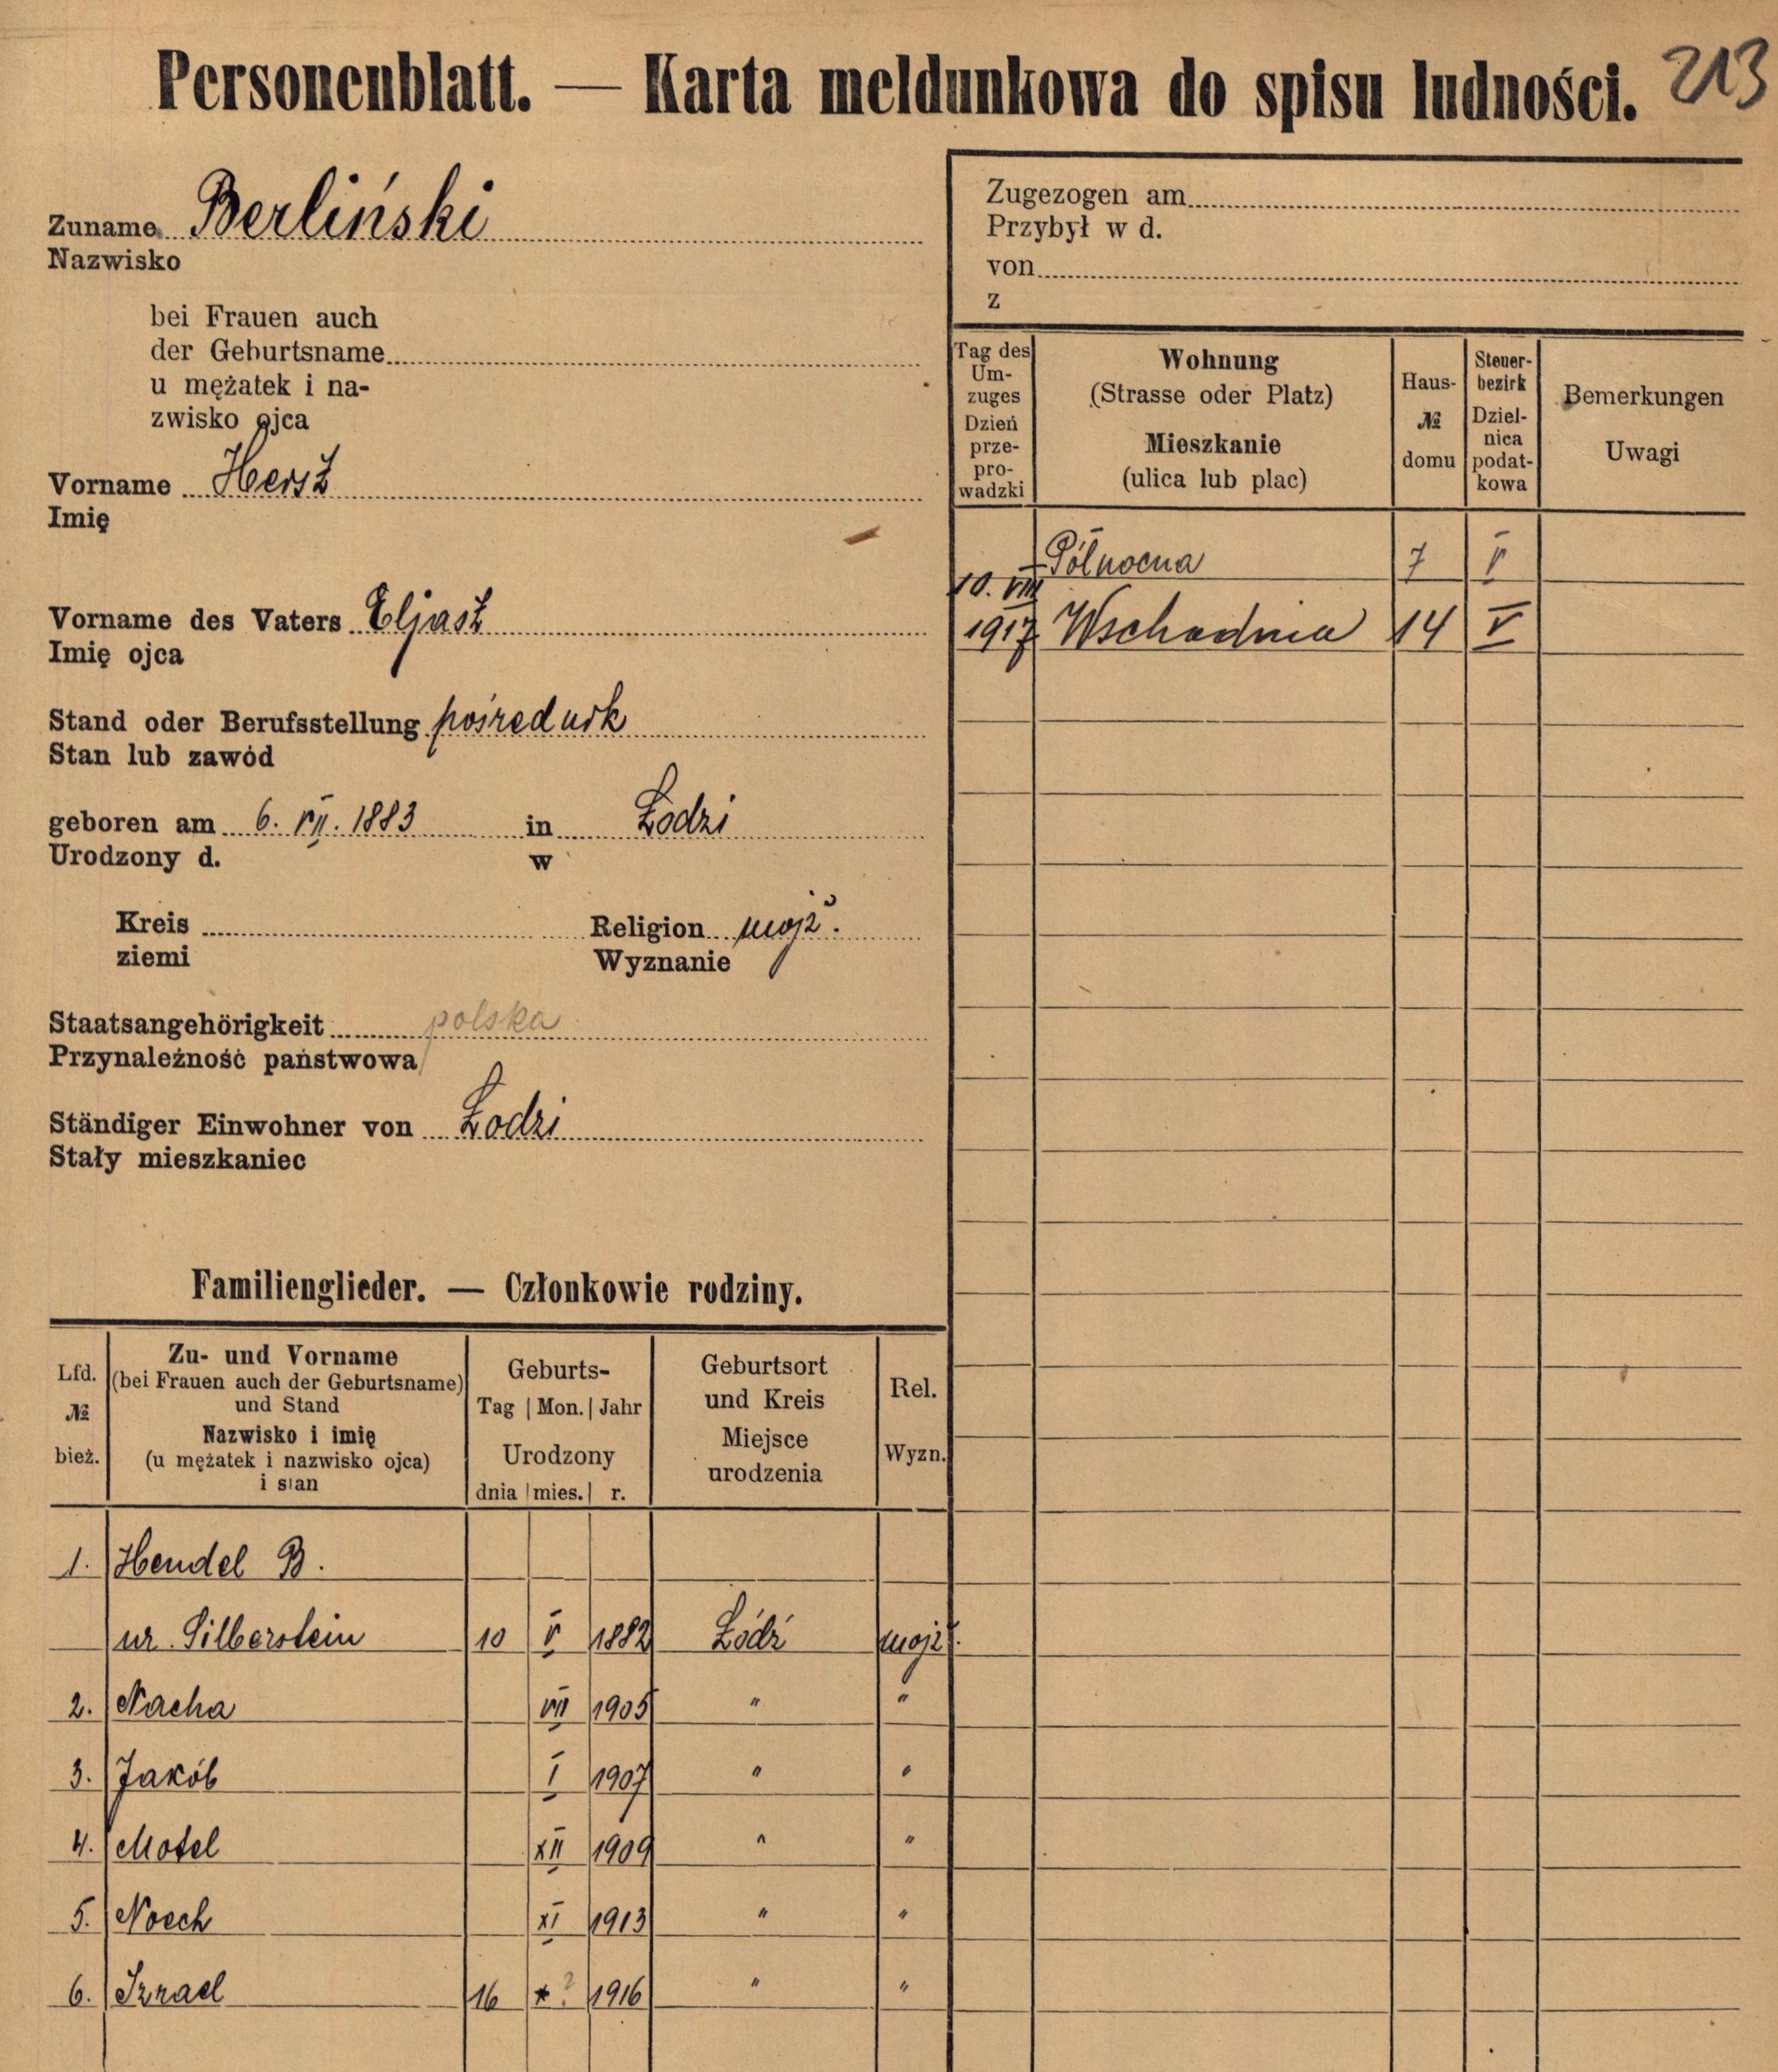 Personenblatt. — Karta meldunkowa do spisu ludności. 213
Zuname Berliński
Nazwisko
bei Frauen auch
der Geburtsname
u mężatek i na-
zwisko ojca
Vorname Hersż
Imię
Vorname des Vaters Eljasż
Imię ojca
Stand oder Berufsstellung pośrednik
Stan lub zawód
geboren am 6. VII. 1883 in Łodzi
Urodzony d. w
Kreis Religion mojż.
ziemi Wyznanie
Staatsangehörigkeit polska
Przynależność państwowa
Ständiger Einwohner von Łodzi
Stały mieszkaniec
Zugezogen am
Przybył w d.
von
z
Tag des Um-zuges Wohnung (Strasse oder Platz) Haus- № Steuer-bezirk Bemerkungen
Dzień prze-pro-wadzki Mieszkanie (ulica lub plac) domu Dziel-nica podat-kowa Uwagi
Północna 7 V
10. VIII 1917 Wschodnia 14 V
Familienglieder. — Członkowie rodziny.
Lfd. № Zu- und Vorname (bei Frauen auch der Geburtsname) und Stand Geburts- Tag | Mon. | Jahr Geburtsort und Kreis Rel.
bież. Nazwisko i imię (u mężatek i nazwisko ojca) i stan Urodzony dnia | mies. | r. Miejsce urodzenia Wyzn.
1. Hendel B.
ur. Silberstein 10 V 1882 Łódź mojż.
2. Nacha VII 1905 " "
3. Jakób I 1907 " "
4. Motel XII 1909 " "
5. Noech XI 1913 " "
6. Izrael 16 ? 1916 " "